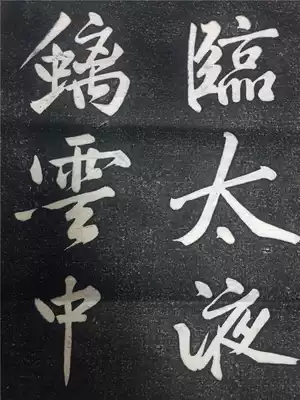 臨太液
螭雲中